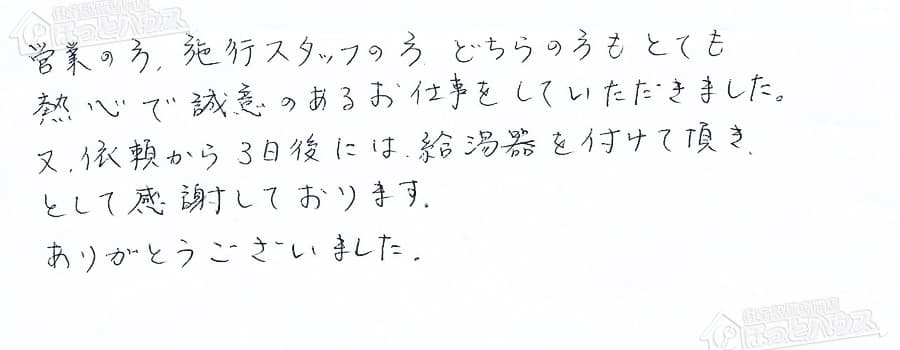 営業の方、施行スタッフの方 どちらの方もとても
熱心で誠意のあるお仕事をしていただきました。
又、依頼から3日後には、給湯器を付けて頂き、
として感謝しております。
ありがとうございました。
住宅設備専門店
ほっとハウス
住宅設備専門店
ほっとハウス